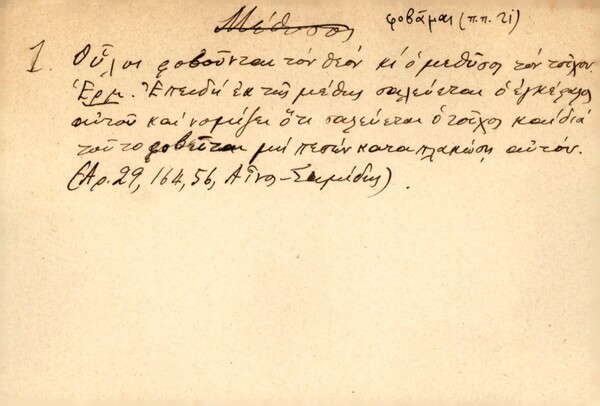 Μέθυσος φοβάμαι (π.π. 21)
1. Οὗλοι φοβοῦνται τὸν θεόν κι ὁ μεθύσος τὸν τοῖχον.
Ἑρμ. Ἐπειδή ἐκ τῆς μέθης σαλεύεται ὁ ἐγκέφαλος
αὐτοῦ καί νομίζει ὅτι σαλεύεται ὁ τοῖχος καί διά
τοῦτο φοβεῖται μή πεσών καταπλακώσῃ αὐτόν.
(Αρ. 29, 164, 56, Αἶνος - Σαμίδης)